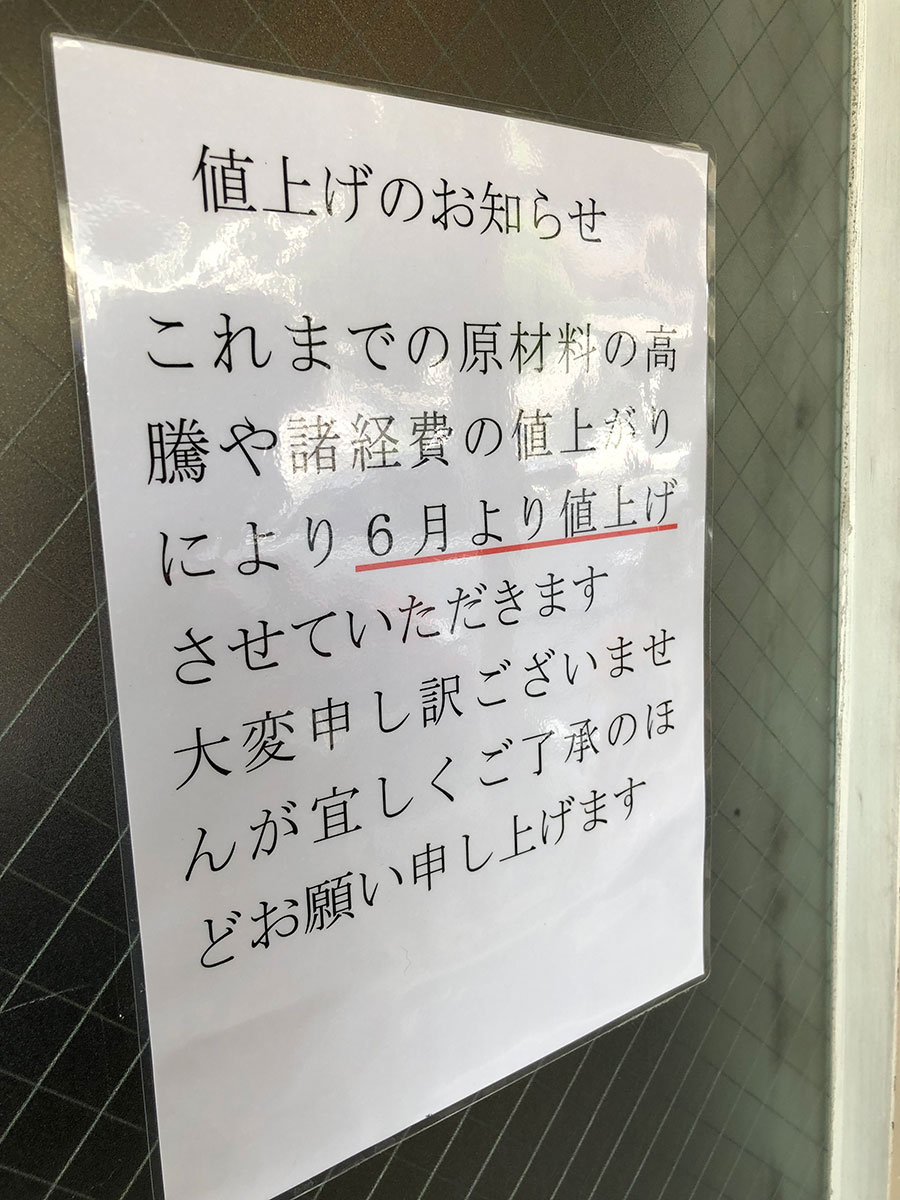 値上げのお知らせ
これまでの原材料の高
騰や諸経費の値上がり
により６月より値上げ
させていただきます
大変申し訳ございませ
んが宜しくご了承のほ
どお願い申し上げます